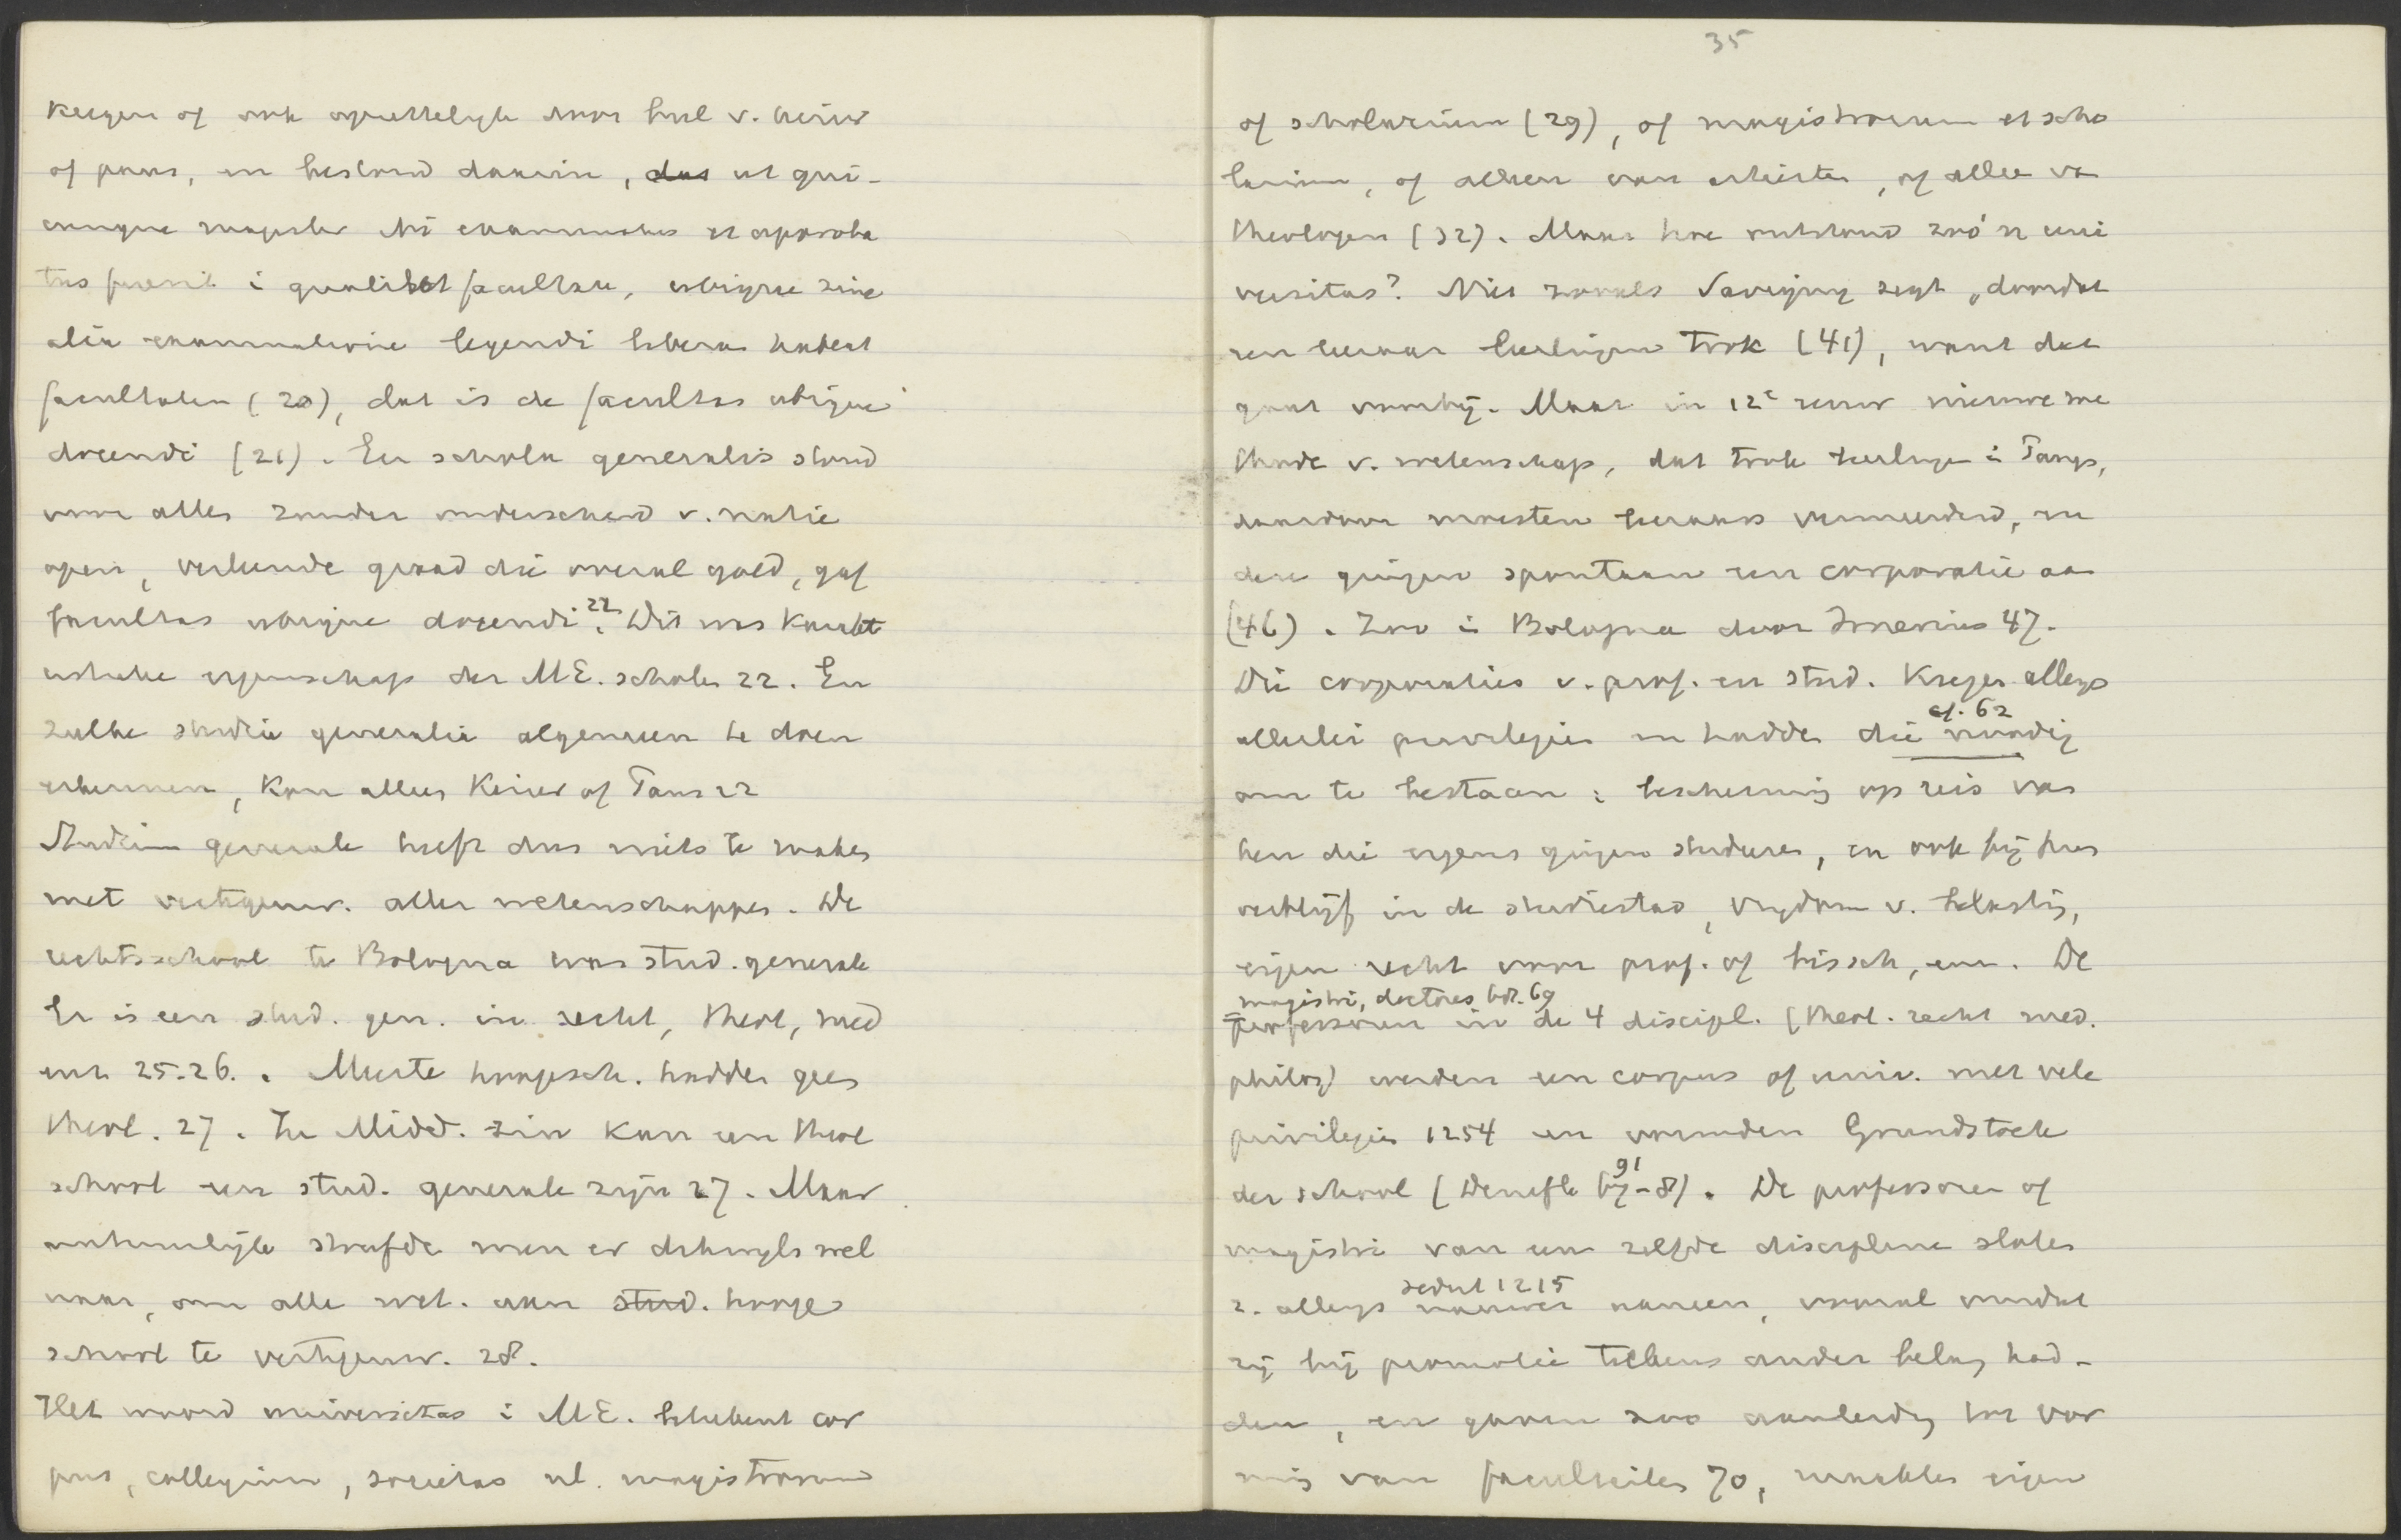 kregen of ook opzettelyk door bul v. keizer
of paus, en bestond daarin, dat ut qui-
cunque magister ibi examinatus et approba
tus fuerit i qualibet facultate, ubique sine
alia examinatione legendi liberam habeat
facultatem (20), dat is de facultas ubique
docendi (21). Een schola generalis stond
voor allen zonder onderscheid v. natie
open, verleende graad die overal gold, gaf
facultas ubique docendi.22 Dit was karakt
eristieke eigenschap der ME. scholen 22. En
zulke studia generalia algemeen te doen
erkennen, kon alleen Keizer of Paus 22
Studium generale heeft dus niets te maken
met vertegenw. aller wetenschappen. De
rechtsschool te Bologna was stud. generale
Er is een stud. gen. in recht, theol, med
enz 25-26.. Meeste hoogesch. hadden geen
theol. 27. In Midd. zin kan een theol
school een stud. generale zijn 27. Maar
natuurlijk streefde men er dikwyls wel
naar, om alle wet. aan stud. hooge
school te vertegenw. 28.
Het woord universitas i ME. beteekent cor
pus, collegium, societas nl. magistrorum
35
of scholarium (29), of magistrorum et scho
larium, of alleen van artisten, of alleen va
theologen (32). Maar hoe ontstond zoó'n uni
versitas? Niet zooals Savigny zegt „doordat
een leeraar leerlingen trok (41), want dat
gaat voorbij. Maar in 12e eeuw nieuwe me
thode v. wetenschap, dat trok leerlingen i Parys,
daardoor moesten leeraars vermeerderd, en
deze gingen spontaan een corporatie aan
(46). Zoo i Bologna door Irnerius 47.
Die corporaties v. prof. en stud. kregen allengs
cf. 62
allerlei privilegien en hadden die noodig
om te bestaan: bescherming op reis van
hen die ergens gingen studeren, en ook bij hun
verblijf in de studiestad, vrydom v. belasting,
eigen recht voor prof. of bissch, enz. De
magistri, doctores bdl. 69
professoren in de 4 discipl. (theol. recht med.
philos) werden een corpus of univ. met vele
privilegien 1254 en vormden Grundstock
91
der school (Denifle 67-8). De professoren of
magistri van een zelfde discipline sloten
sedert 1215
z. allengs nauwer aaneen, vooral omdat
zij bij promotie telkens ander belang had-
den, en gaven zoo aanleiding tot vor
ming van faculteiten 70, maakten eigen